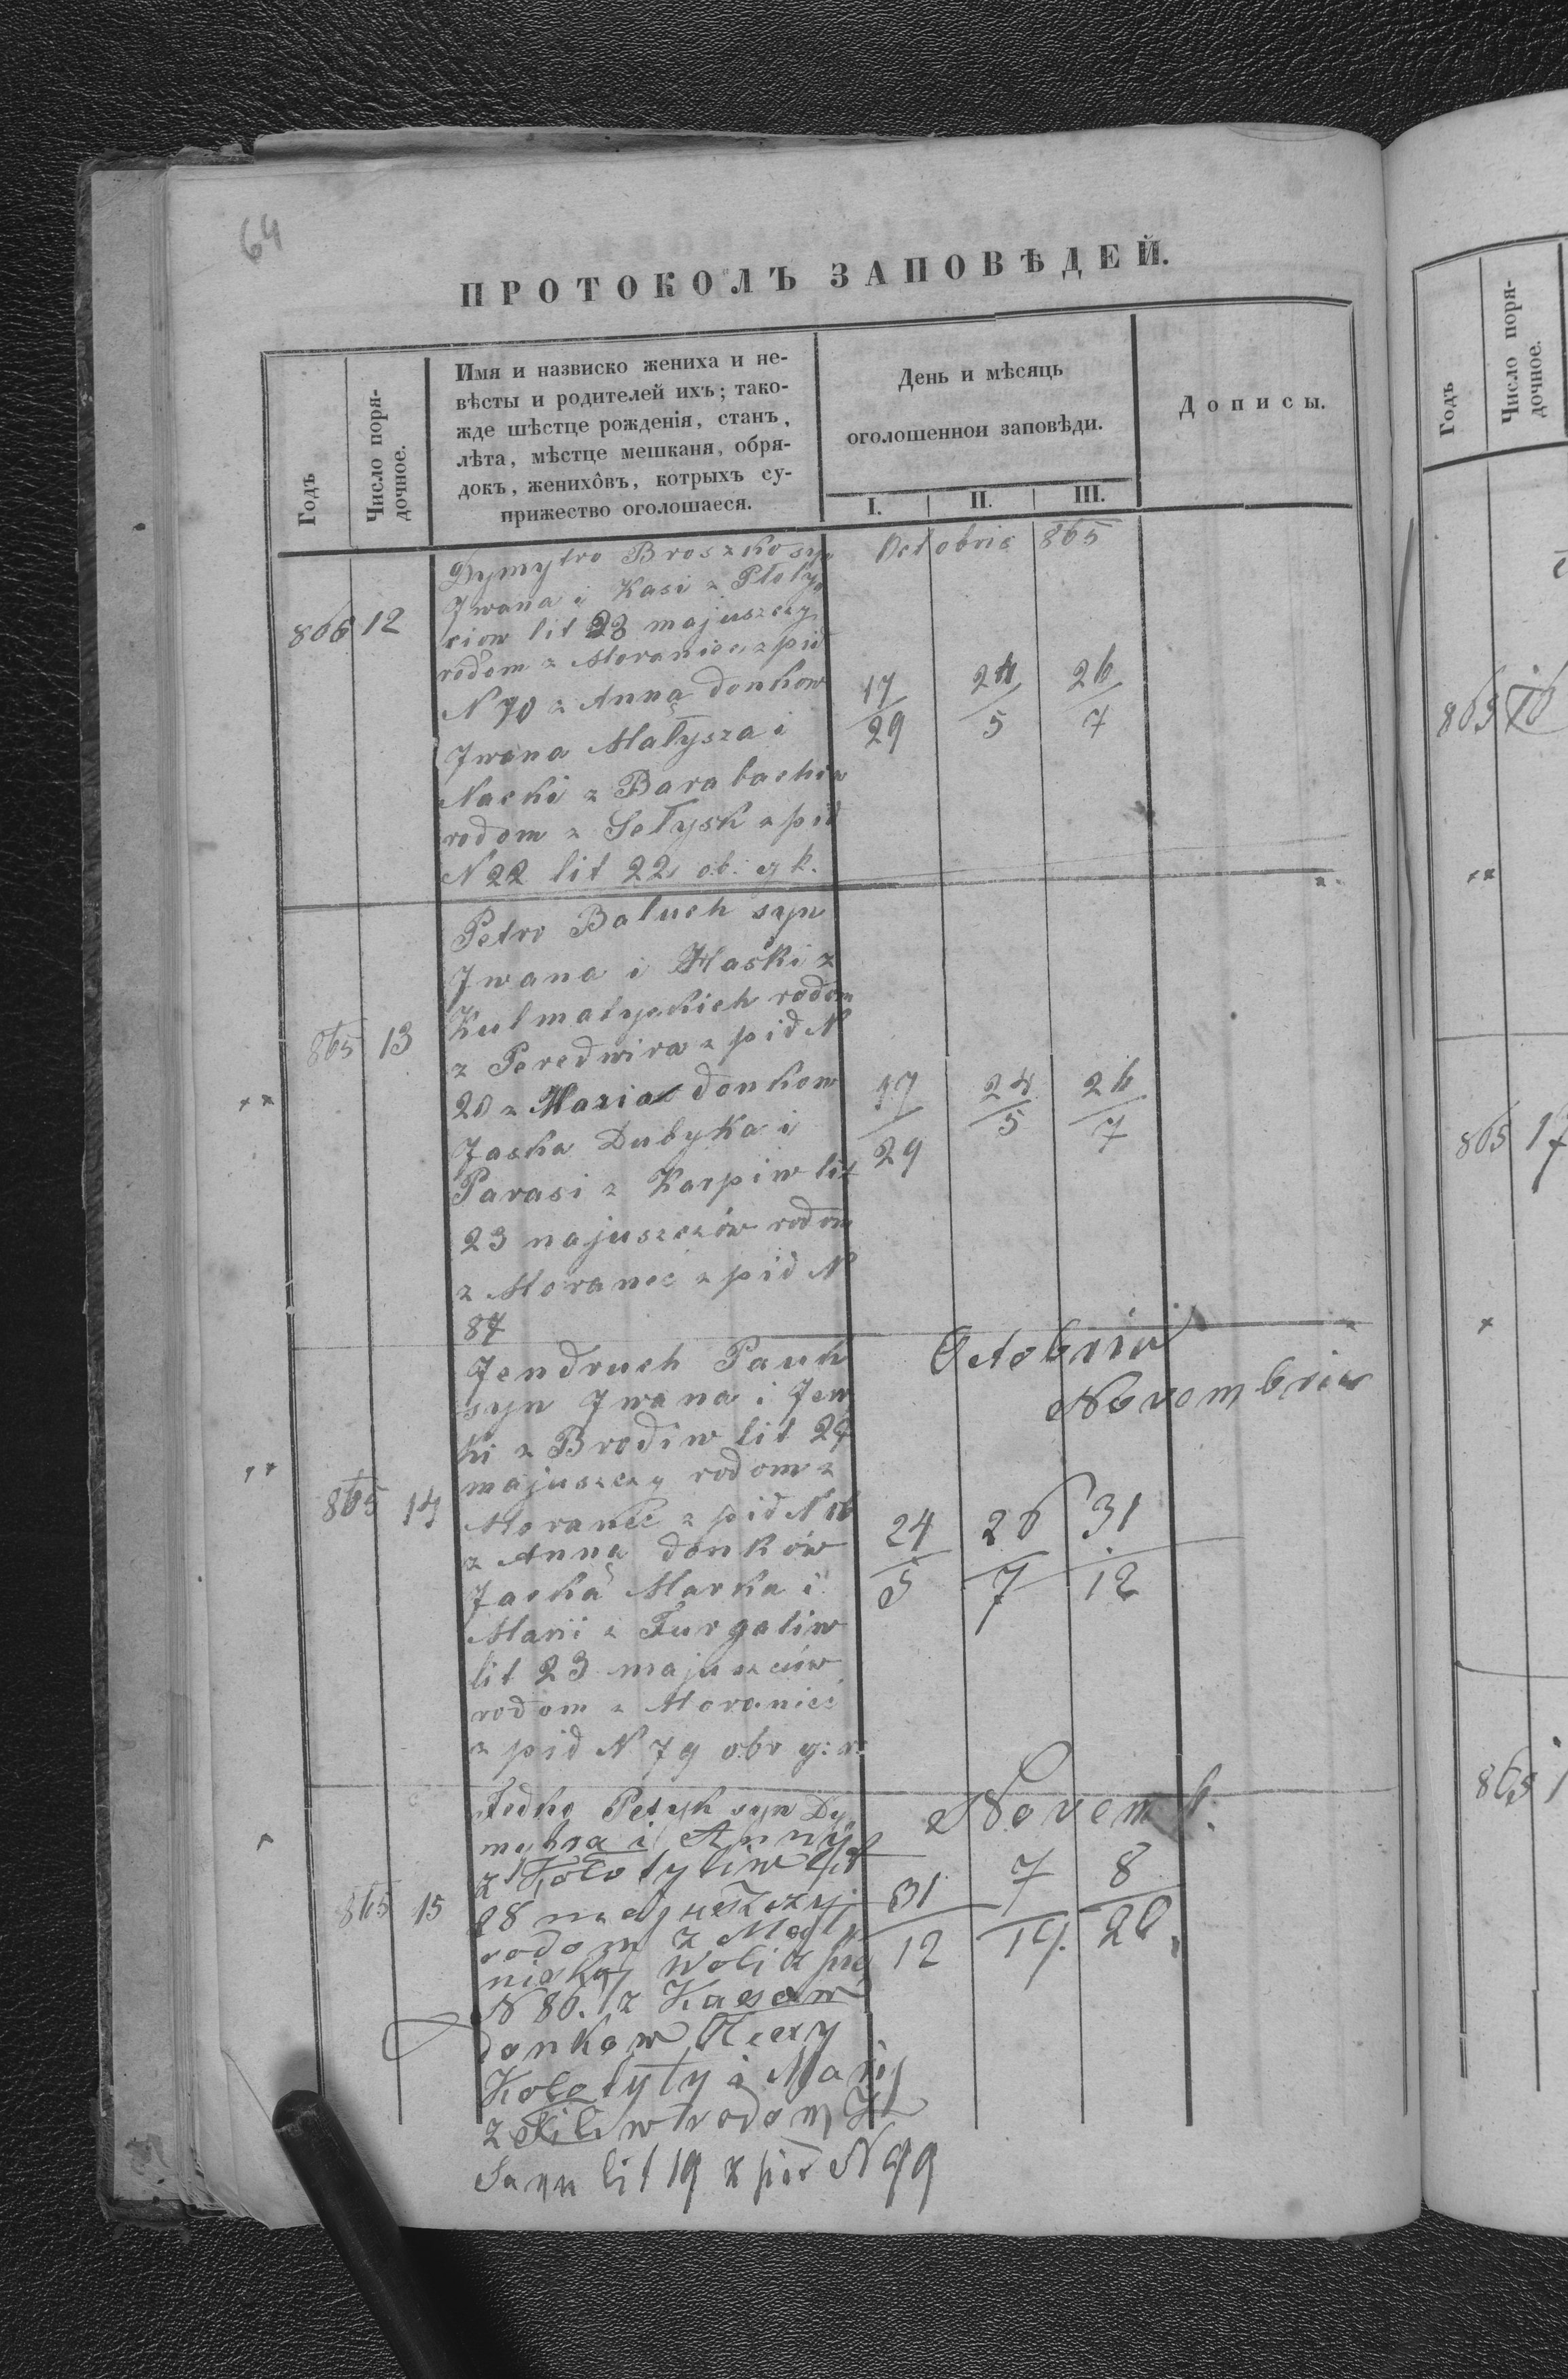 64
ПРОТОКОЛЪ ЗАПОВѢДЕЙ.
Годъ
Число поря-
дочное.
Имя и назвиско жениха и не-
вѣсты и родителей ихъ; тако-
жде шѣстце рожденія, станъ,
лѣта, мѣстце мешканя, обря-
докъ, женихо̂въ, котрыхъ су-
прижество оголошаеся.
День и мѣсяць
оголошеннои заповѣди.
I. II. III.
Дописы.
Octobris 865
865 12
Dymytro Broszko syn
Iwana i Kasi z
ciow lit 23 majuszczy
rodom z Moraniec z pid
N 70 z Anną donkow
Iwana Małysza i
Nacki z Barabachiw
rodom z Sełysk z pid
N 22 lit 22 ob. g k.
17/29 24/5 26/7
865 13
Petro Baluch syn
Iwana i Haśki z
Kulmatyckich rodom
z Peredwira z pid N
20 z Maria donkow
Jaska Dubyka i
Parasi z Karpiw lit
23 najuszczów rodom
z Moraneć z pid N
87
17/29 24/5 26/7
Octobris
Novembris
865 14
Jendruch Pauk
syn Iwana i Jew
ki z Brodiw lit 24
majuszczy rodom z
Moraneć z pid N
z Anną donków
Jacka Marka i
Marii z Furgaliw
lit 23
rodom z Moranieć
z pid N 79 obr g: k:
24/5 26/7 31/12
Novemb.
865 15
Fedko Petyk syn Dy
mytra i Anny
z Kołotyliw lit
28 majuszczy
rodom z
Woli z pid
N 86. z
donkow
Kolotyły i Marij
z rodom z
lit 19 z pid N 99
31/12 7/19. 8/20.
Годъ
Число поря-
дочное.
865
865 17
865